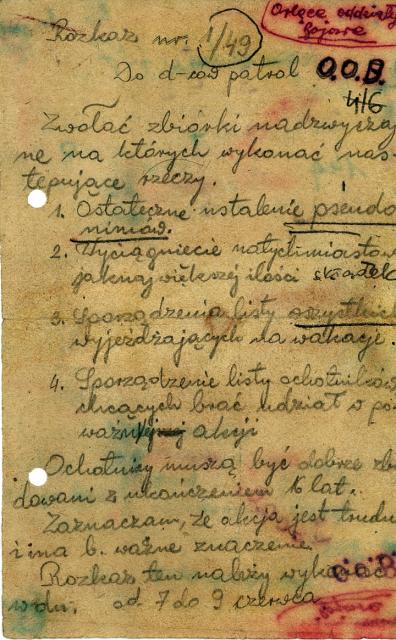 Orlęce oddziały
bojowe
Rozkaz nr. 1/49
Do d-ców patrol
O.O.B.
4/6
Zwołać zbiórki nadzwyczaj
ne na których wykonać nas-
tępujące rzeczy.
1. Ostateczne ustalenie pseudo
nimów.
2. Wyciągnięcie natychmiastow
jaknajwiększej ilości składek
3. Sporządzenia listy wszystkich
wyjeżdżających na wakacje.
4. Sporządzenie listy ochotników
chcących brać udział w po
ważnej akcji
Ochotnicy muszą być dobrze zbu
dowani z ukończeniem 16 lat.
Zaznaczam, że akcja jest trudn
i ma b. ważne znaczenie.
Rozkaz ten należy wykonać
w dn. od 7 do 9 czerwca
O.O.B.